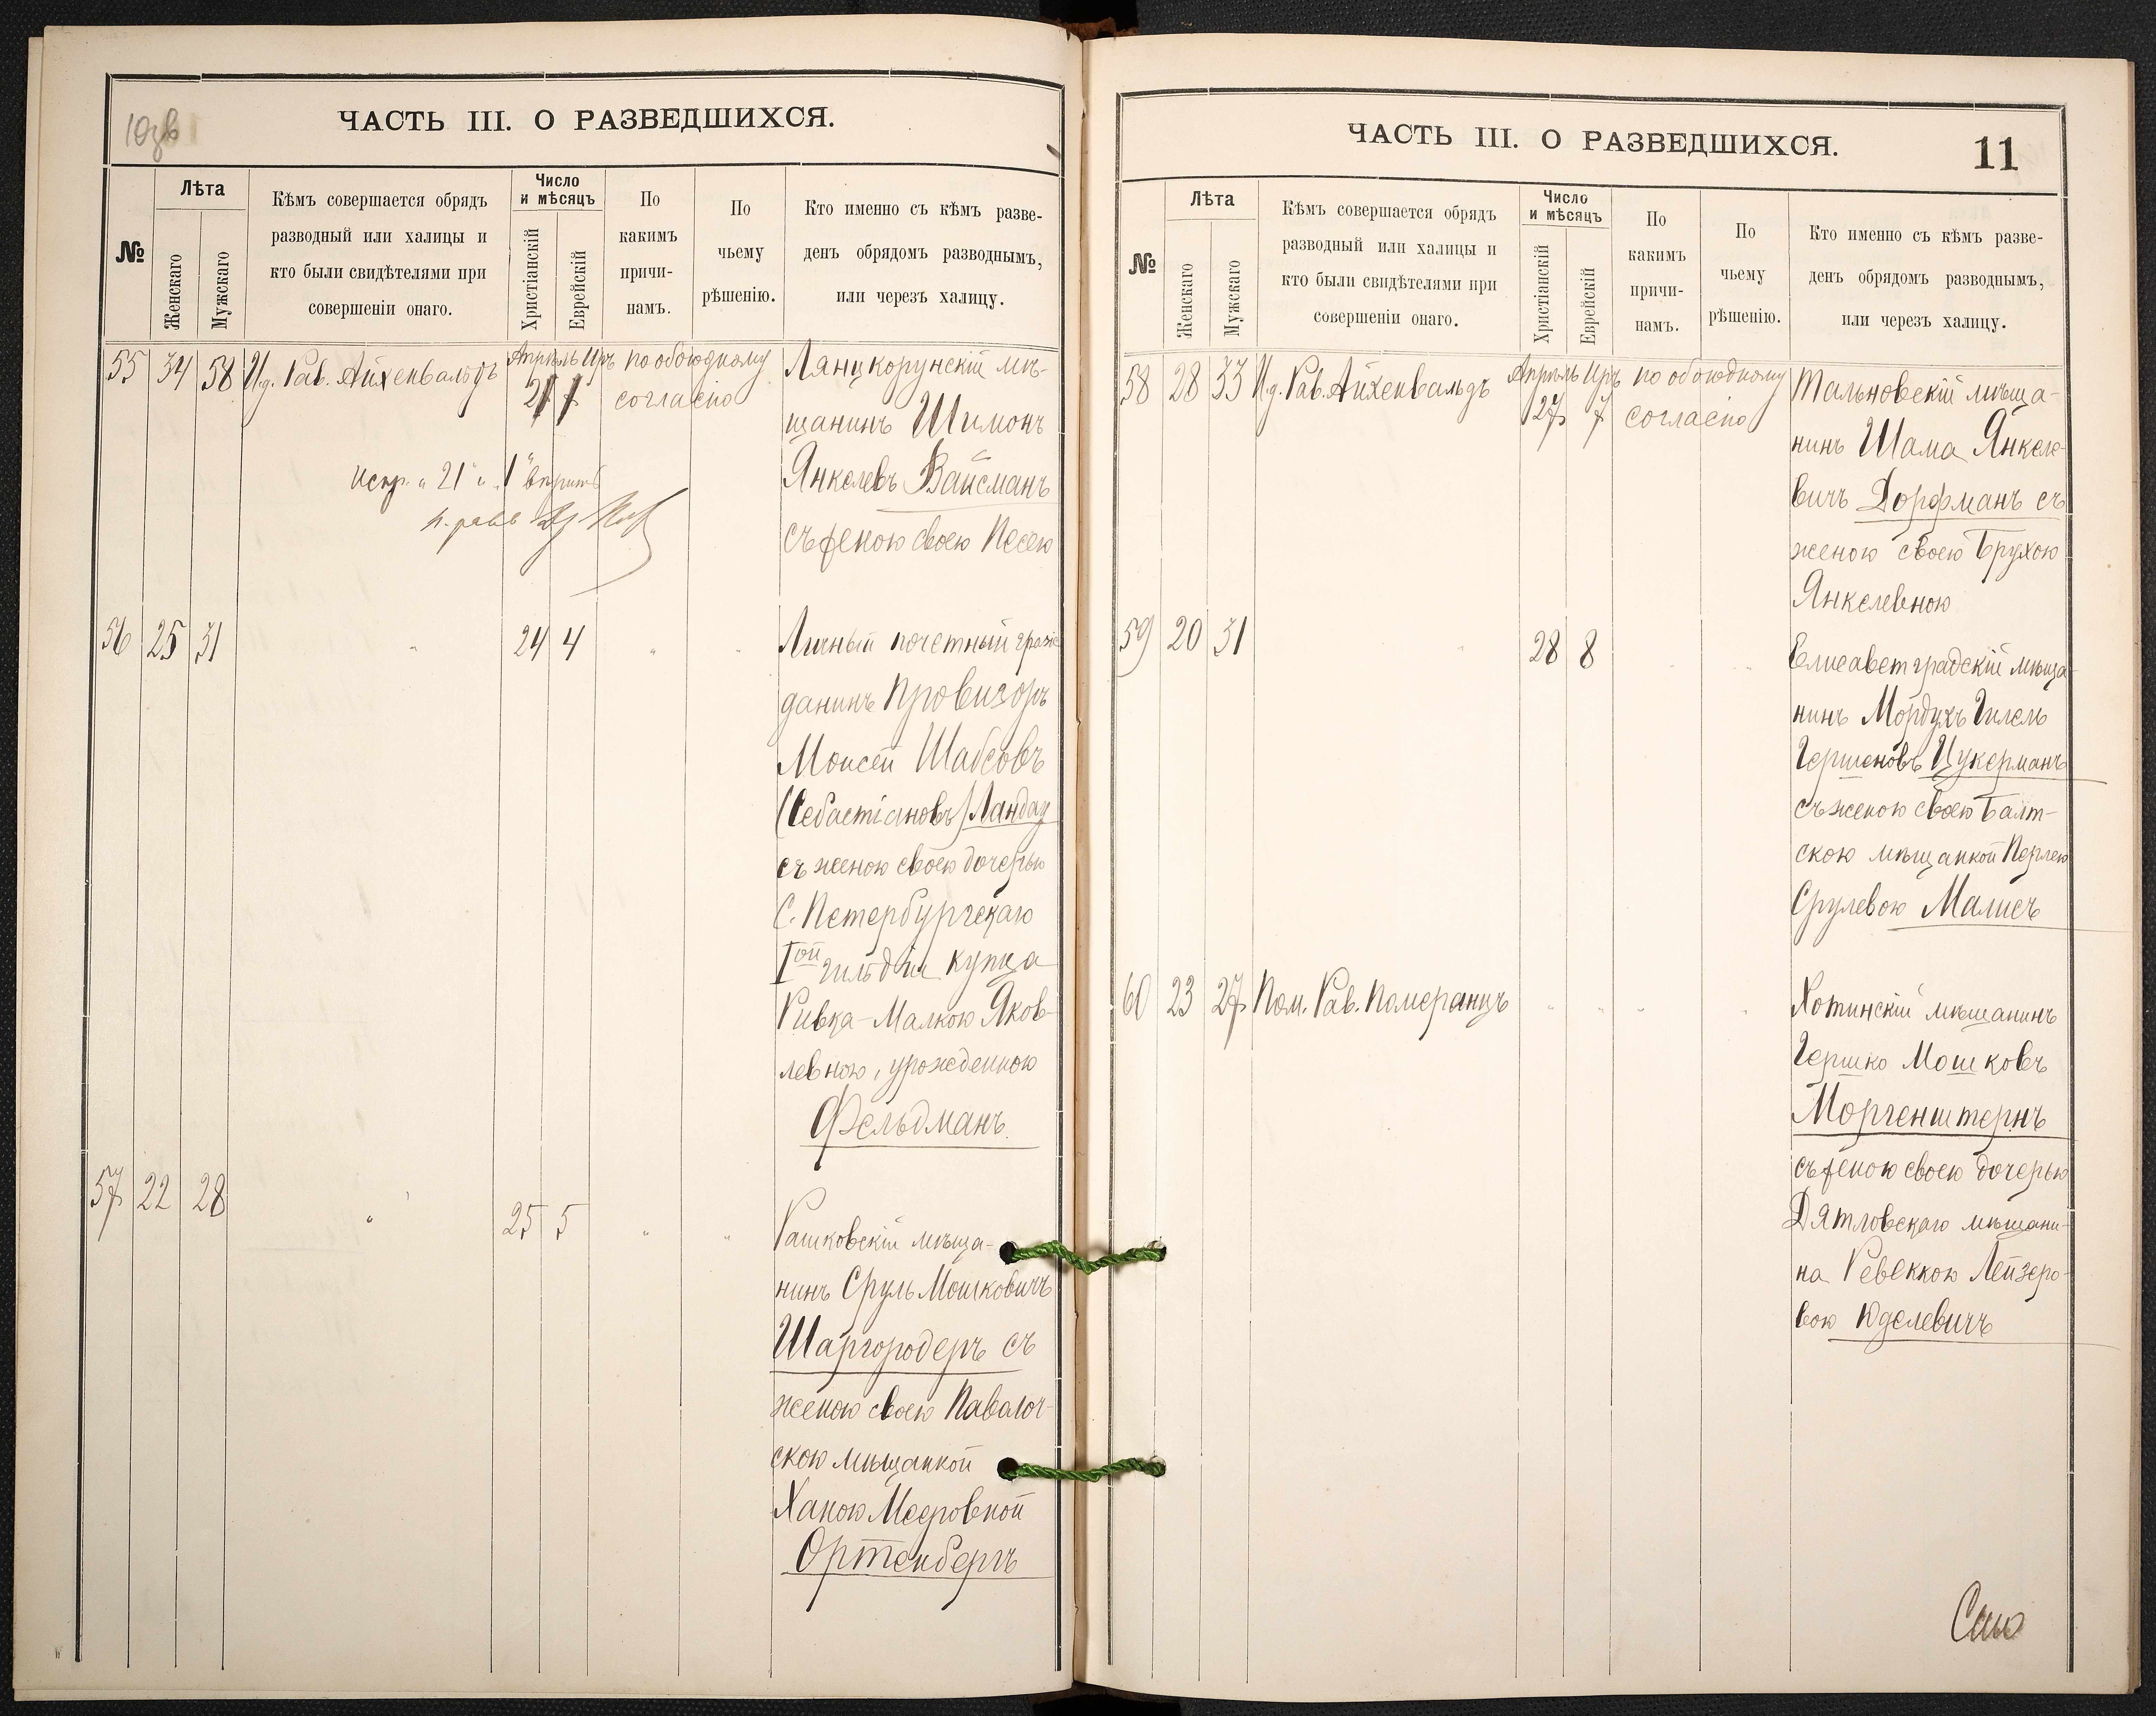 10зв
ЧАСТЬ III. О РАЗВЕДШИХСЯ.
№
Лѣта
Женскаго
Мужскаго
Кѣмъ совершается обрядъ
разводный или халицы и
кто были свидѣтелями при
совершеніи онаго.
Число
и мѣсяцъ
Христіанскій
Еврейскій
По
какимъ
причи-
намъ.
По
чьему
рѣшенію.
Кто именно съ кѣмъ разве-
денъ обрядомъ разводнымъ,
или черезъ халицу.
55 34 58 И.д. Рав. Айхенвальдъ Апрѣль Иръ по обоюдному Лянцкорунскій мѣ-
21 1 согласію щанинъ Шимонъ
Испр. "21" и "1" вѣрить Янкелевъ Вайсманъ
съ женою своею Песею
56 25 31 " 24 4 " " Личный почетный граж-
данинъ провизоръ
Моисей Шабсовъ
(Себастіановъ) Ландау
съ женою своею дочерью
С. Петербургскаго
Iой гильдіи купца
Ривка-Малкою Яков-
левною, урожденною
Фельдманъ.
57 22 28 " 25 5 " " Рашковскій мѣща-
нинъ Сруль Мошковичъ
Шаргородеръ съ
женою своею Паволоч-
скою мѣщанкой
Ханою Мееровной
Ортенбергъ
ЧАСТЬ III. О РАЗВЕДШИХСЯ.
11
№
Лѣта
Женскаго
Мужскаго
Кѣмъ совершается обрядъ
разводный или халицы и
кто были свидѣтелями при
совершеніи онаго.
Число
и мѣсяцъ
Христіанскій
Еврейскій
По
какимъ
причи-
намъ.
По
чьему
рѣшенію.
Кто именно съ кѣмъ разве-
денъ обрядомъ разводнымъ,
или черезъ халицу.
58 28 33 И.д. Рав. Айхенвальдъ Апрѣль Иръ по обоюдному Тальновскій мѣща-
27 7 согласію нинъ Шама Янкеле-
вичъ Дорфманъ съ
женою своею Брухою
Янкелевною
59 20 31 " 28 8 " " Елисаветградскій мѣща-
нинъ Мордухъ Гилель
Гершеновъ Цукерманъ
съ женою своею Балт-
скою мѣщанкой Перлею
Срулевою Малисъ
60 23 27 Пом. Рав. Померанцъ " " " " Хотинскій мѣщанинъ
Гершко Мошковъ
Моргенштернъ
съ женою своею дочерью
Дятловскаго мѣщани-
на Ревеккою Лейзеро-
вою Юделевичъ